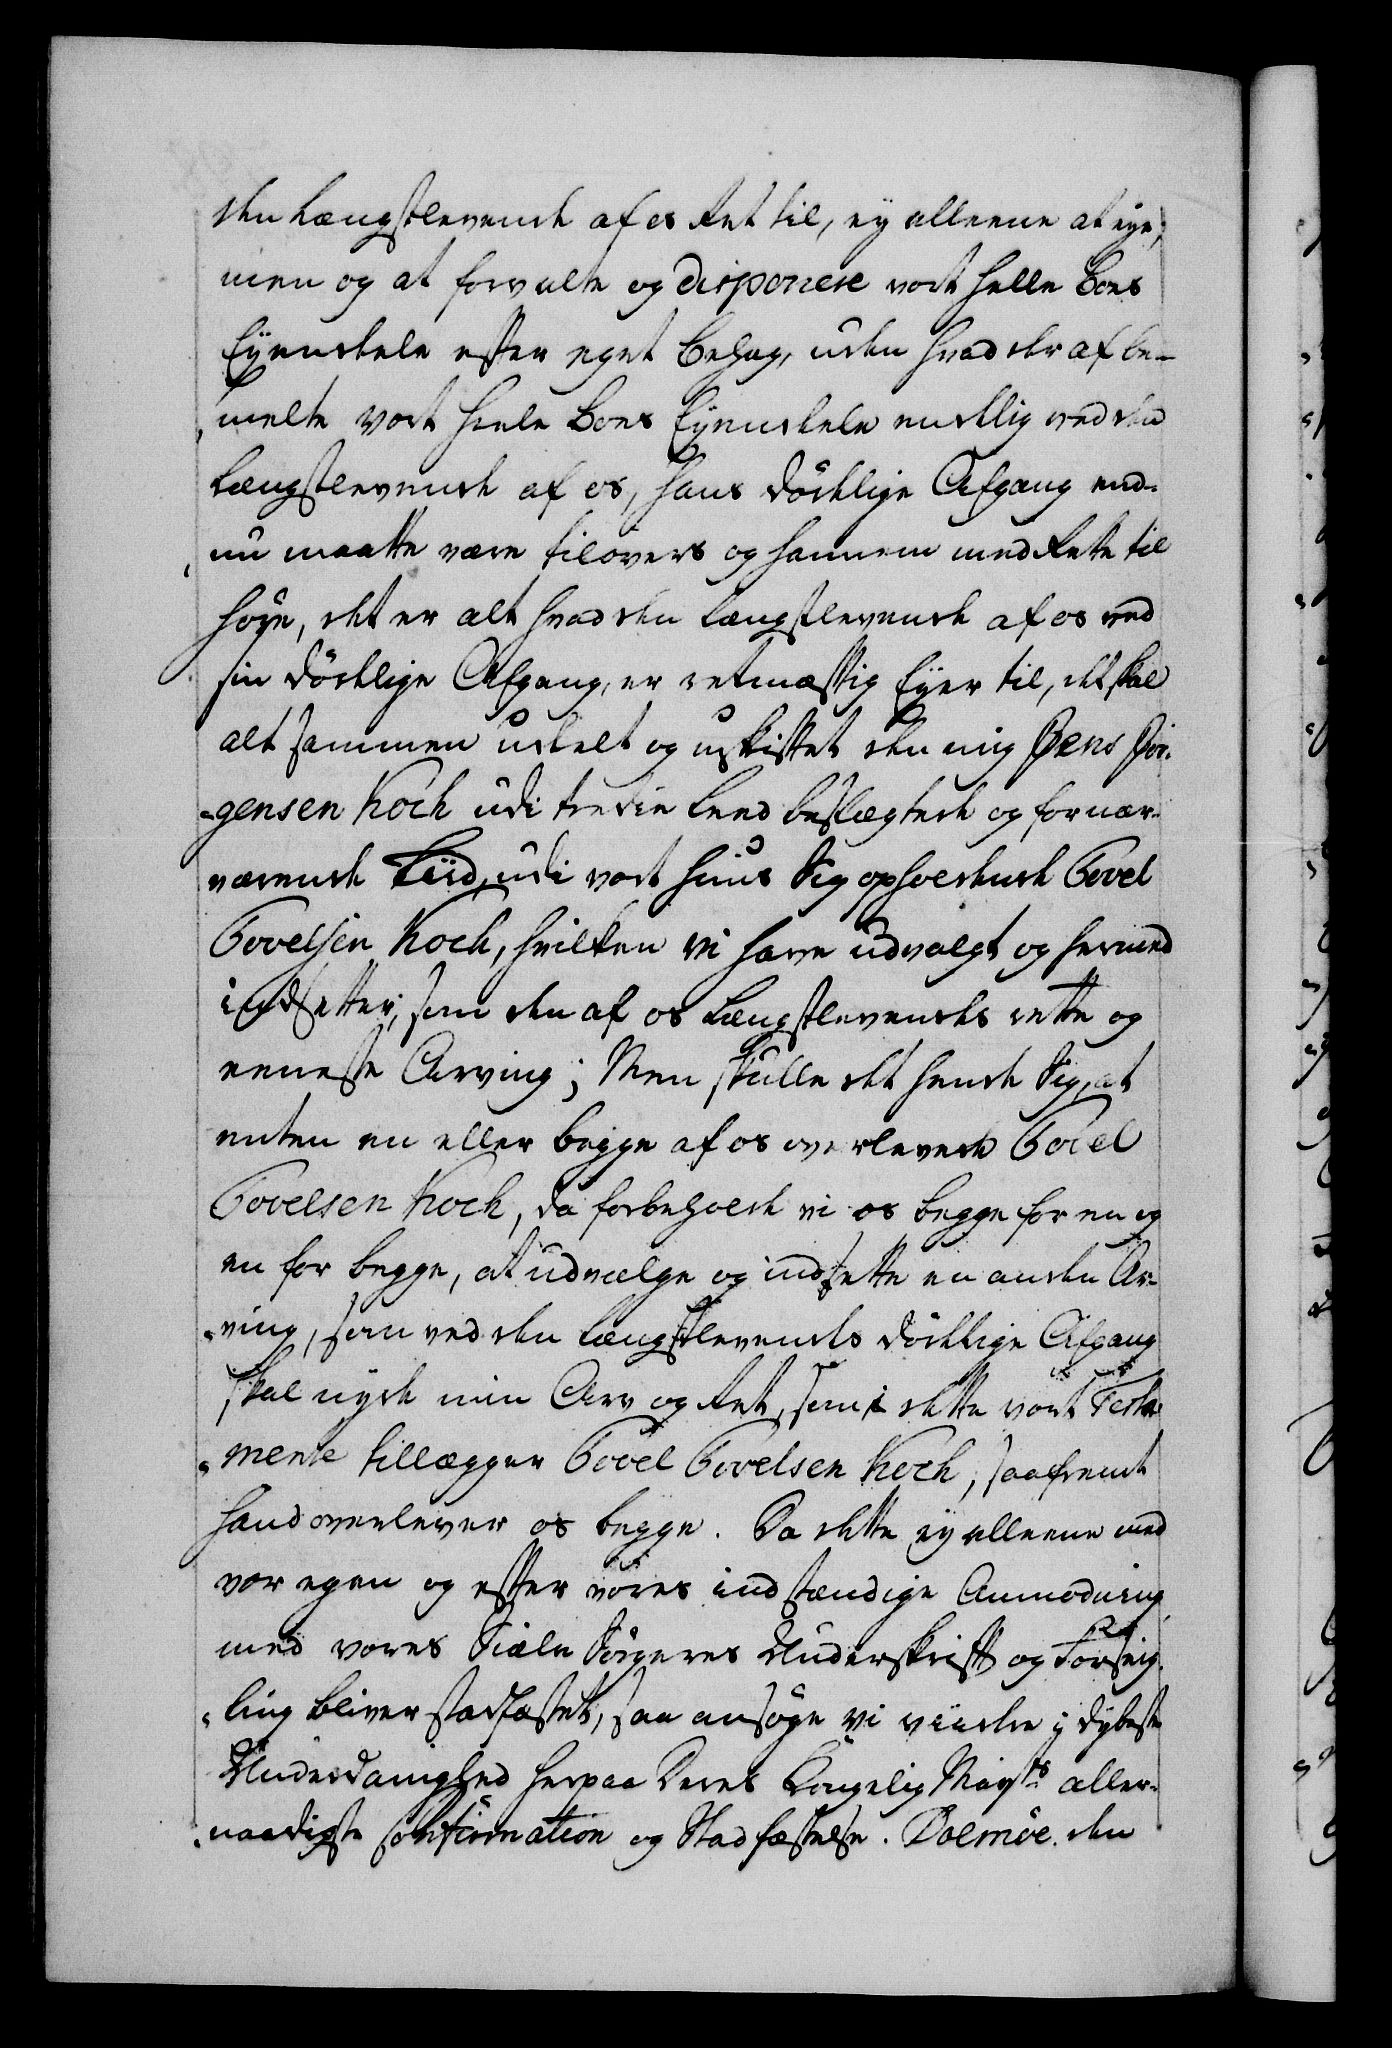 den længstlevende af os Ret til, ey alleene at eye,
men og at forvalte og disponere vort heele Boes
Eyendeele efter eget Behag, uden hvad der af be-
melte vort heele Boes Eyendeele endelig ved den
Længstlevende af os, hans dödelige Afgang end-
nu maatte være tilovers og hannem med Rette til
höre, det er alt hvad den længstlevende af os ved
sin dödelige Afgang, er retmæssig Eyer til, det skal
alt sammen udeelt og uskiftet den mig Jens Jör-
gensen Koch udi tredie Leed beslægtede og for nær-
værende Tiid, udi vort Huus Sig opholdende Povel
Povelsen Koch, hvilken vi have udvalgt og hermed
indsetter, som den af os Længstlevendes rette og
eeneste Arving; Men skulle det hende Sig, at
enten en eller begge af os overlevede Povel
Povelsen Koch, da forbeholde vi os begge for en og
en for begge, at udvælge og indsette en anden Ar-
ving, som ved den længstlevendes dödelige Afgang
skal nyde min Arv og Ret, som i dette vort Testa-
mente tillægges Povel Povelsen Koch, saafremt
hand overlever os begge. Da dette ey alleene med
vor egen og efter vores indstændige Anmodning
med vores Siæle Sörgeres Underskrift og Forseig-
ling bliver stadfæstet, saa ansöge vi videre i dybeste
Underdanighed herpaa Deres Kongelig Mayts aller-
naadigste Confirmation og Stadfæstelse. den